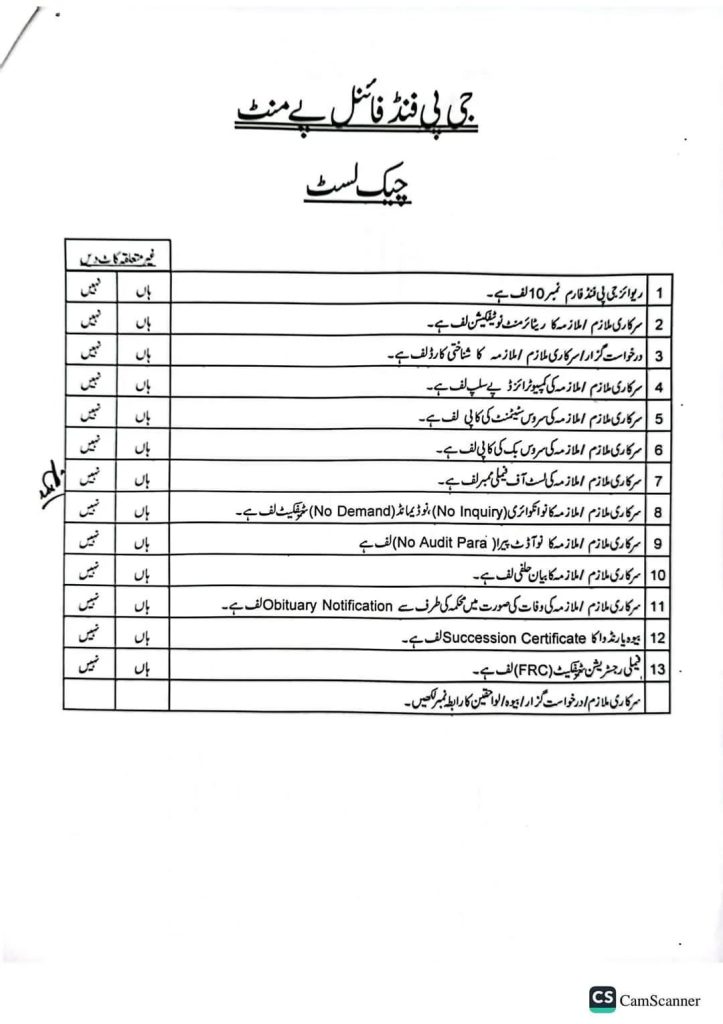 جی پی فنڈ فائنل پے منٹ
چیک لسٹ
غیر متعلقہ کاٹ دیں
1 ریوائز جی پی فنڈ فارم نمبر 10 لف ہے۔ ہاں نہیں
2 سرکاری ملازم / ملازمہ کا ریٹائرمنٹ نوٹیفکیشن لف ہے۔ ہاں نہیں
3 درخواست گزار / سرکاری ملازم / ملازمہ کا شناختی کارڈ لف ہے۔ ہاں نہیں
4 سرکاری ملازم / ملازمہ کی کمپیوٹرائزڈ پے سلپ لف ہے۔ ہاں نہیں
5 سرکاری ملازم / ملازمہ کی سروس سٹیٹمنٹ کی کاپی لف ہے۔ ہاں نہیں
6 سرکاری ملازم / ملازمہ کی سروس بک کی کاپی لف ہے۔ ہاں نہیں
7 سرکاری ملازم / ملازمہ کی لسٹ آف فیملی ممبر لف ہے۔ ہاں نہیں
8 سرکاری ملازم / ملازمہ کا نو انکوائری (No Inquiry)، نو ڈیمانڈ (No Demand) سرٹیفکیٹ لف ہے۔ ہاں نہیں
9 سرکاری ملازم / ملازمہ کا نو آڈٹ پیرا (No Audit Para) لف ہے ہاں نہیں
10 سرکاری ملازم / ملازمہ کا بیان حلفی لف ہے۔ ہاں نہیں
11 سرکاری ملازم / ملازمہ کی وفات کی صورت میں محکمہ کی طرف سے Obituary Notification لف ہے۔ ہاں نہیں
12 بیوہ یا رنڈوا کا Succession Certificate لف ہے۔ ہاں نہیں
13 فیملی رجسٹریشن سرٹیفکیٹ (FRC) لف ہے۔ ہاں نہیں
سرکاری ملازم / درخواست گزار / بیوہ / لواحقین کا رابطہ نمبر لکھیں۔
CS CamScanner